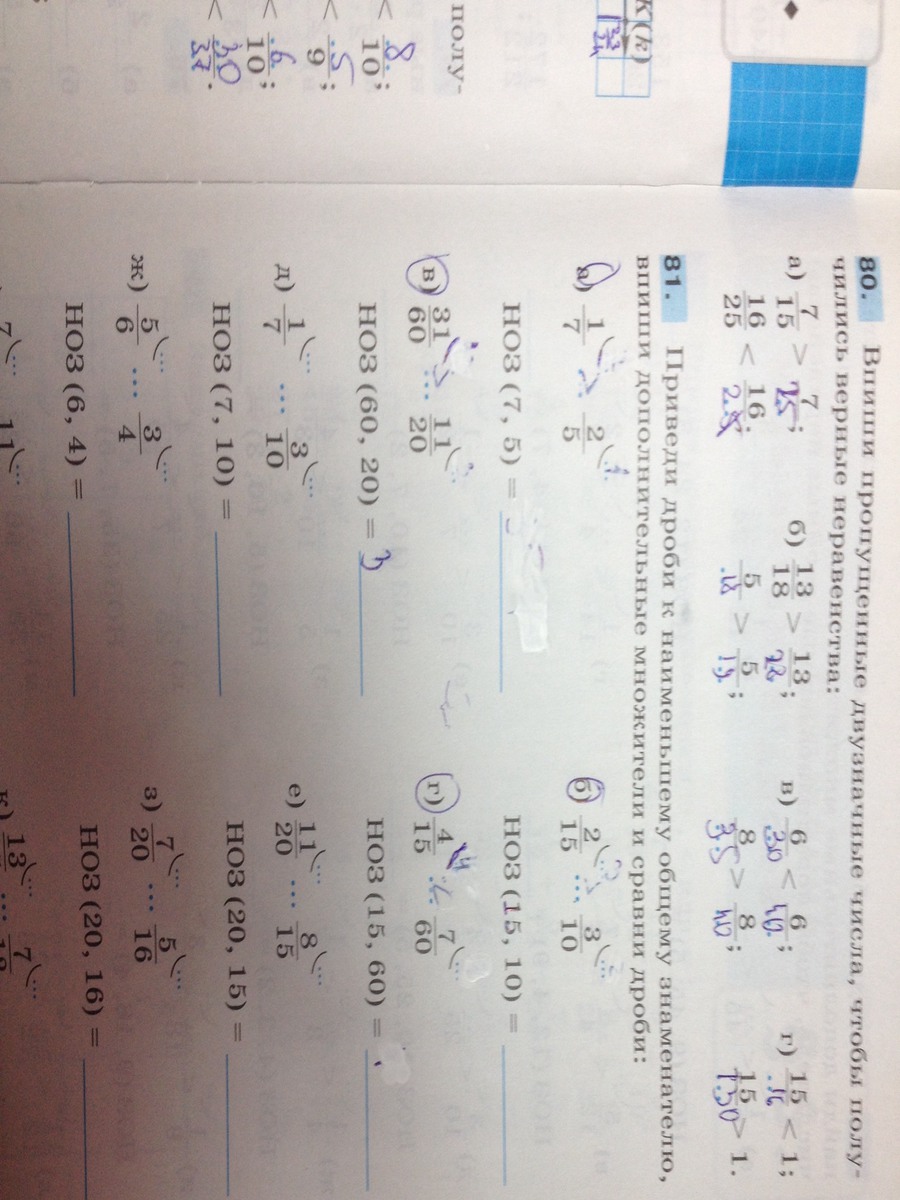 K(k)
полу-
< 8/10;
< 5/9;
< 6/10;
< 30/37.
80. Впиши пропущенные двузначные числа, чтобы полу-
чились верные неравенства:
а) 7/15 > 7/25; б) 13/18 > 13/22; в) 6/30 < 6/; г) 15/16 < 1;
16/25 < 16/. 5/18 > 5/19; 8/35 > 8/40; 15/ > 1.
81. Приведи дроби к наименьшему общему знаменателю,
впиши дополнительные множители и сравни дроби:
а) 1/7 ... 2/5 б) 2/15 ... 3/10
НОЗ (7, 5) = НОЗ (15, 10) =
в) 31/60 ... 11/20 г) 4/15 ... 7/60
НОЗ (60, 20) = 3 НОЗ (15, 60) =
д) 1/7 ... 3/10 е) 11/20 ... 8/15
НОЗ (7, 10) = НОЗ (20, 15) =
ж) 5/6 ... 3/4 з) 7/20 ... 5/16
НОЗ (6, 4) = НОЗ (20, 16) =
7 ... 11 к) 13 ... 7